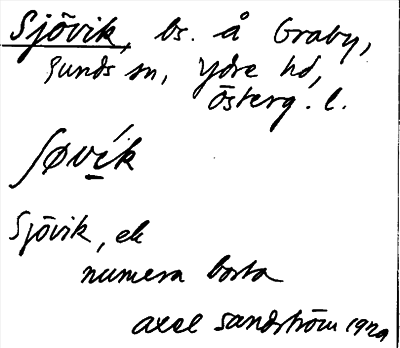 Sjövik, bs. å Graby,
Sunds sn, Ydre hd,
Österg. l.
ʃøvík
Sjövik, ek
numera borta
Axel Sandström 1929